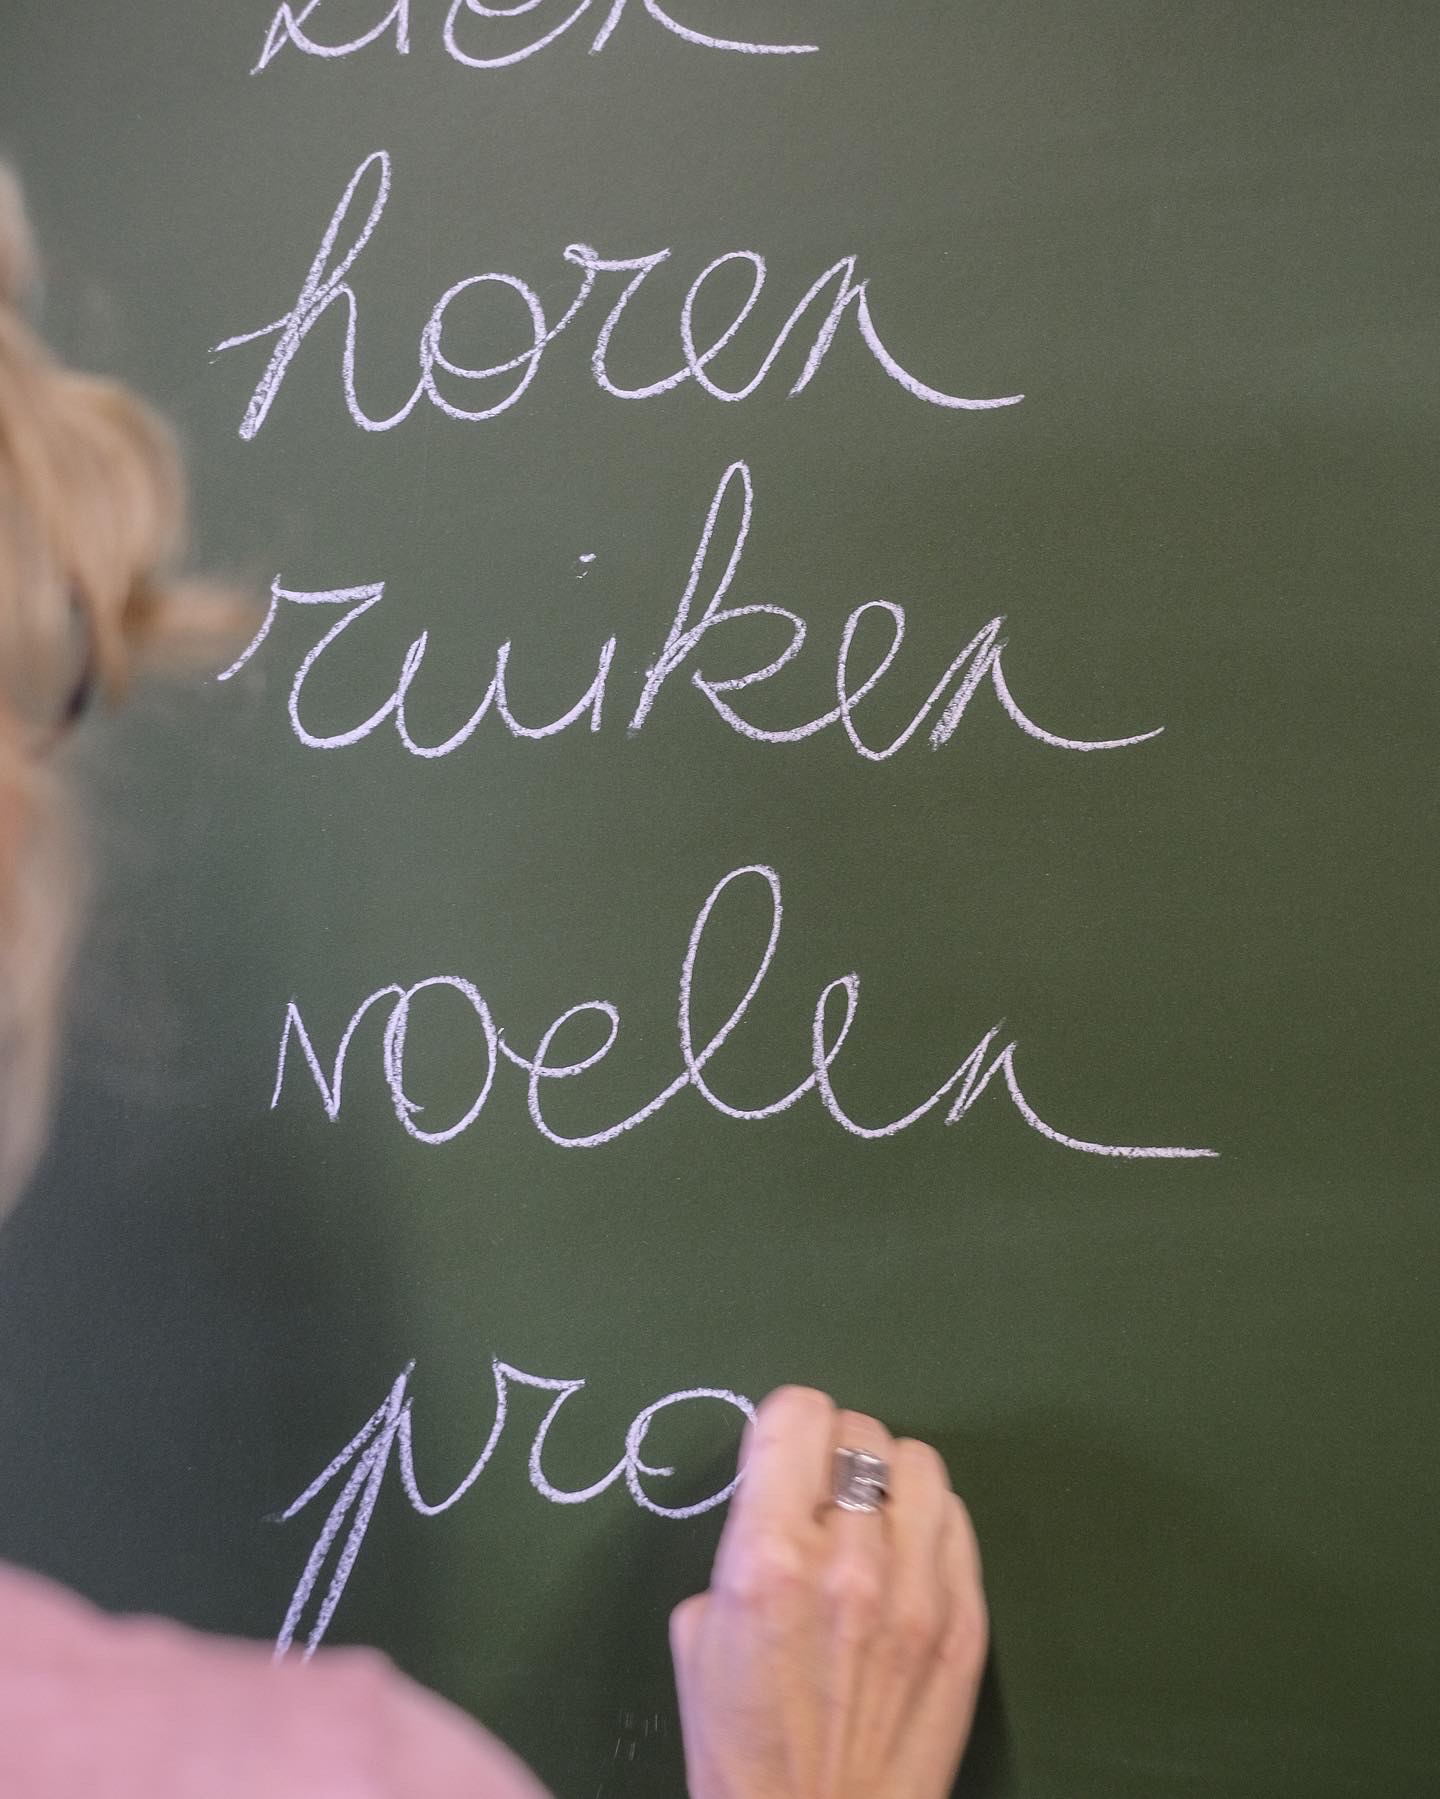 zien
horen
ruiken
voelen
pro